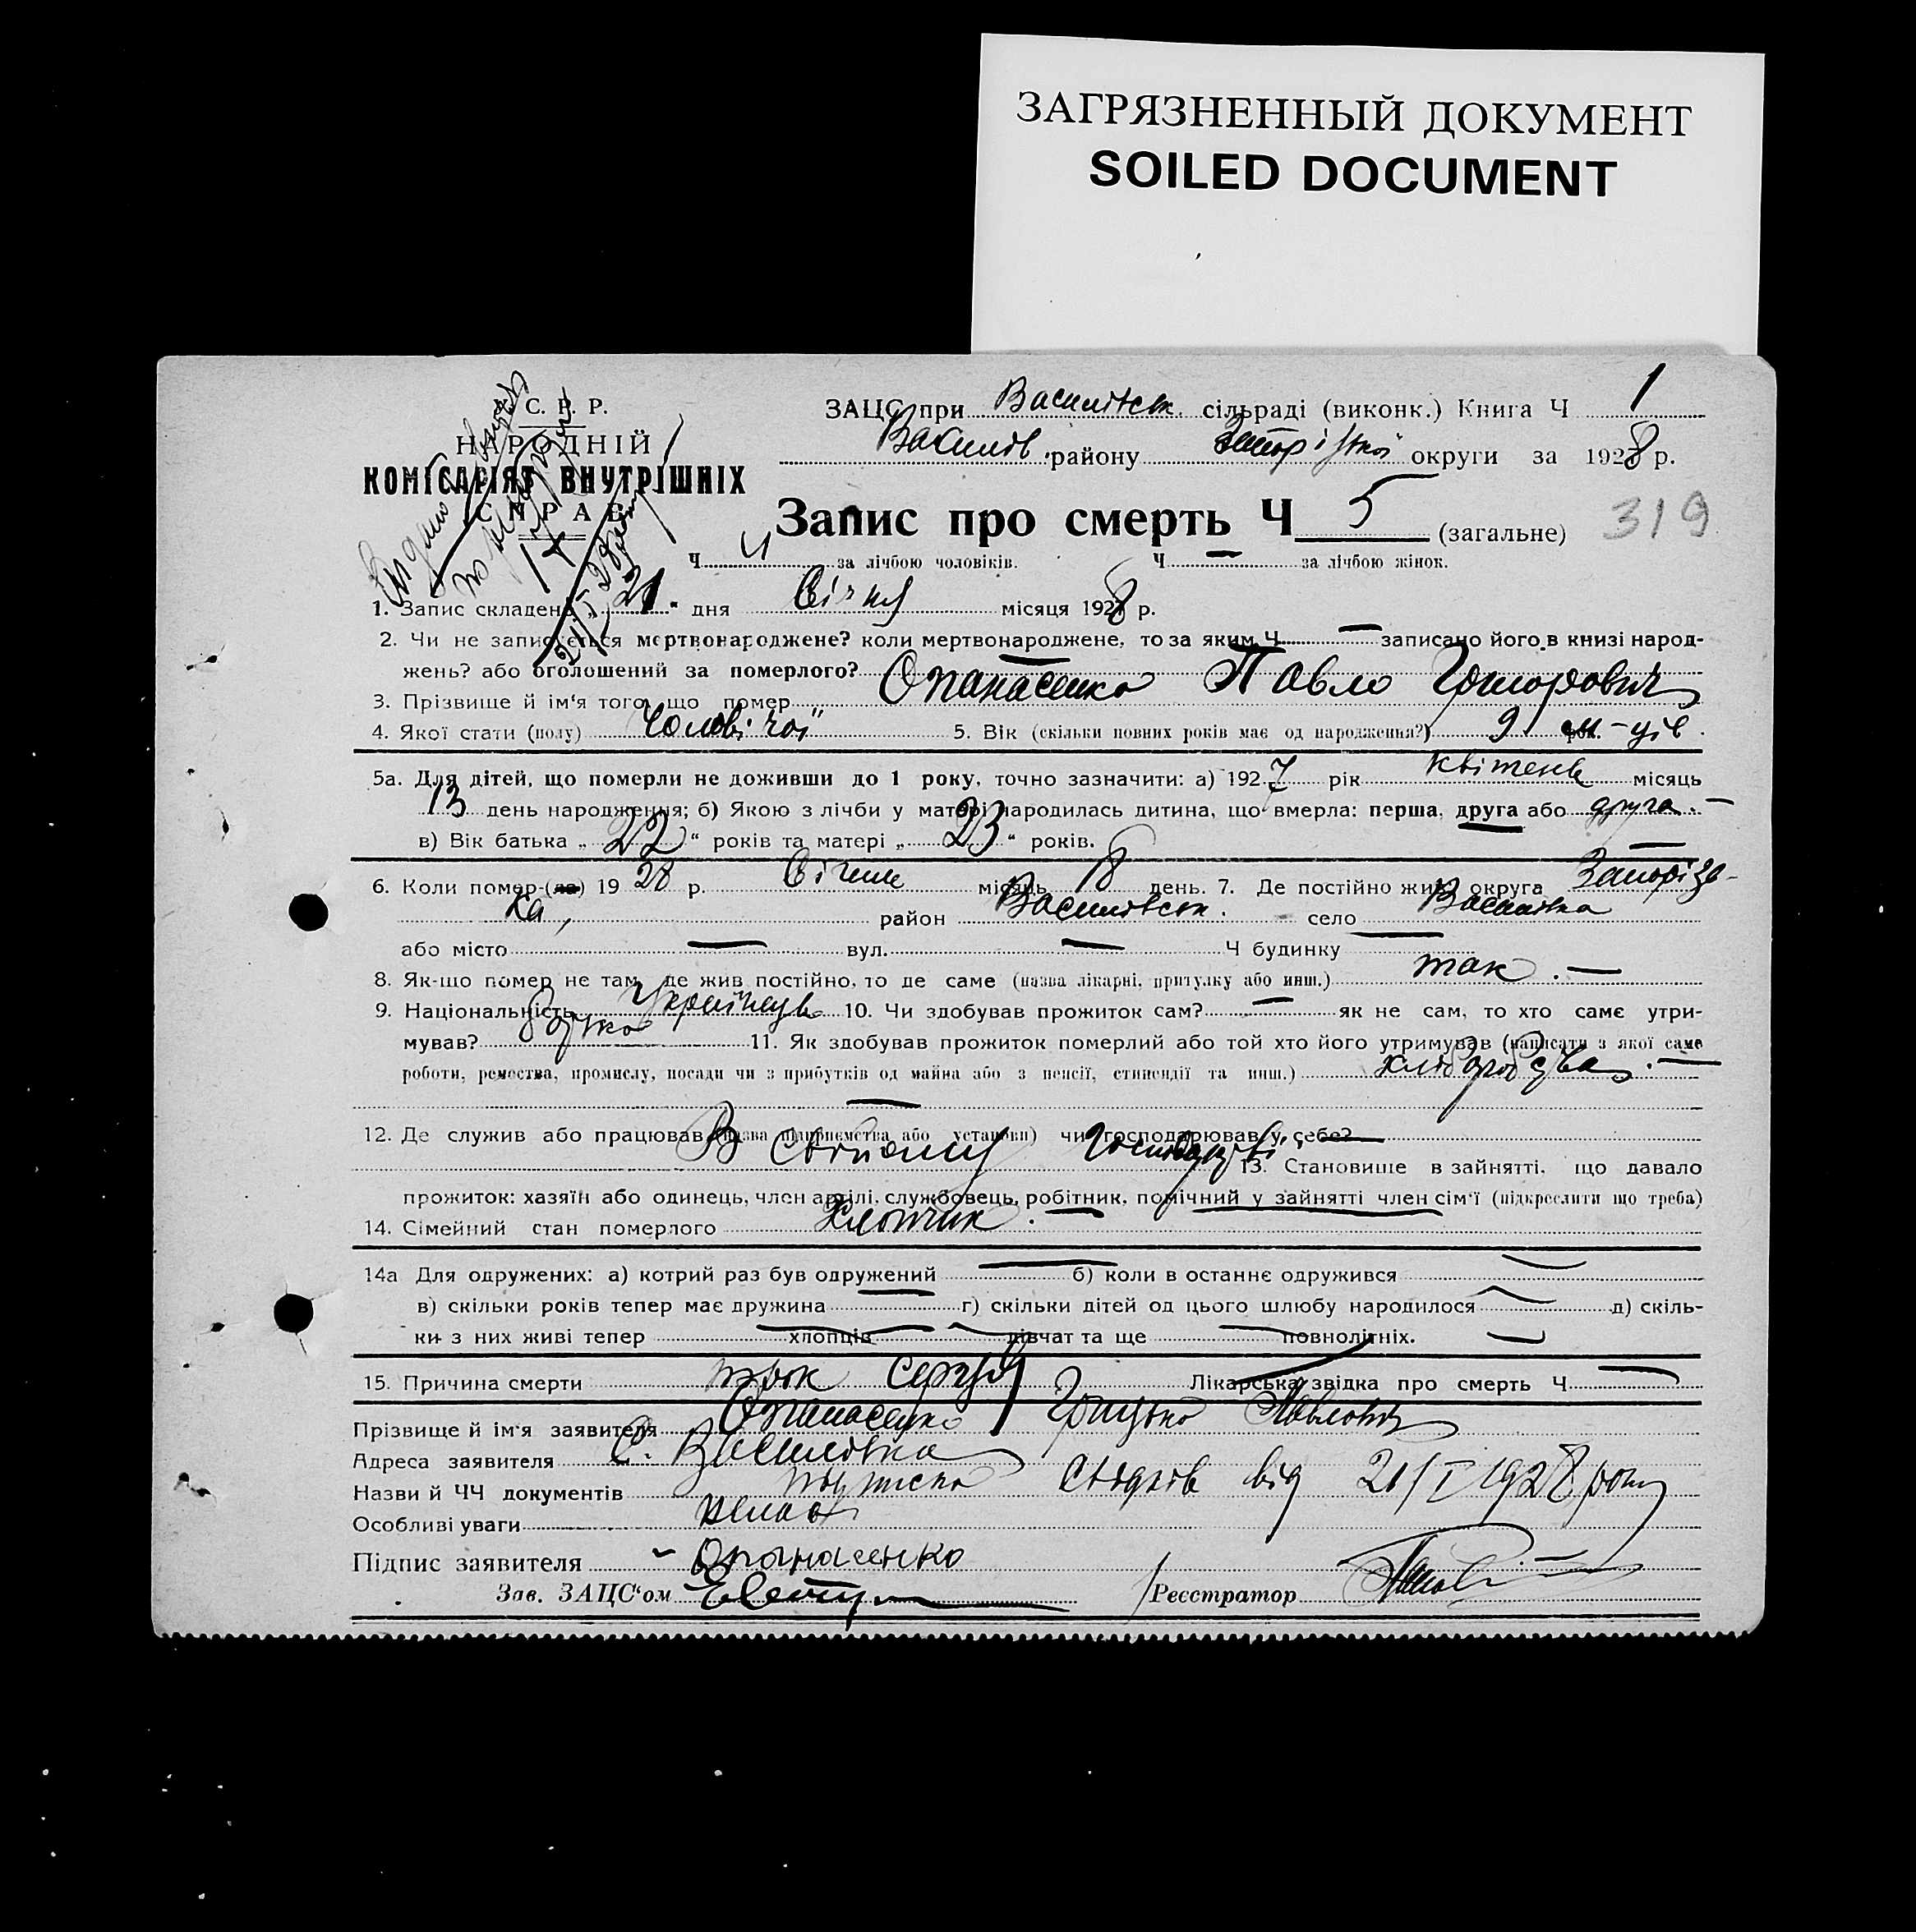 ЗАГРЯЗНЕННЫЙ ДОКУМЕНТ
SOILED DOCUMENT
С. Р. Р.
НАРОДНІЙ
КОМІСАРІЯТ ВНУТРІШНІХ
СПРАВ
ЗАЦС при Василівськ. сільраді (виконк.) Книга Ч 1
Василів. району округи за 1928 р.
Запис про смерть Ч 5 (загальне) 319
Ч 4 за лічбою чоловіків. Ч — за лічбою жінок.
1. Запис складено „21“ дня Січня місяця 1928 р.
2. Чи не записується мертвонароджене? коли мертвонароджене, то за яким Ч — записано його в книзі народ-
жень? або оголошений за померлого? —
3. Прізвище й ім'я того, що помер Опанасенко Павло Григорович
4. Якої стати (полу) Чоловічої 5. Вік (скільки повних років має од народження?) 9 м-ців.
5а. Для дітей, що померли не доживши до 1 року, точно зазначити: а) 1927 рік квітень місяць
13 день народження; б) Якою з лічби у матері народилась дитина, що вмерла: перша, друга або друга. —
в) Вік батька „22“ років та матері „23“ років.
6. Коли помер-(ла) 1928 р. Січень місяць 18 день. 7. Де постійно жив: округа Запорізь-
ка, район Василівськ. село Василівка
або місто — вул. — Ч будинку —
8. Як-що помер не там, де жив постійно, то де саме (назва лікарні, притулку або инш.) так. —
9. Національність Українець 10. Чи здобував прожиток сам? — як не сам, то хто саме утри-
мував? Батько 11. Як здобував прожиток померлий або той хто його утримував (написати з якої саме
роботи, ремества, промислу, посади чи з прибутків од майна або з пенсії, стипендії та инш.) —
12. Де служив або працював (назва підприємства або установи) чи господарював у себе? —
В свойому Господарстві 13. Становище в зайнятті, що давало
прожиток: хазяїн або одинець, член артілі, службовець, робітник, помічний у зайнятті член сім'ї (підкреслити що треба)
14. Сімейний стан померлого Хлопчик. —
14а Для одружених: а) котрий раз був одружений — б) коли в останнє одружився —
в) скільки років тепер має дружина — г) скільки дітей од цього шлюбу народилося — д) скіль-
ки з них живі тепер — хлопців — дівчат та ще — повнолітніх. —
15. Причина смерти Лікарська звідка про смерть Ч —
Прізвище й ім'я заявителя Опанасенко Грицько Павлович
Адреса заявителя С. Василівка
Назви й ЧЧ документів свідків від 21/I 1928 року
Особливі уваги немає
Підпис заявителя Опанасенко
Зав. ЗАЦС'ом Реєстратор